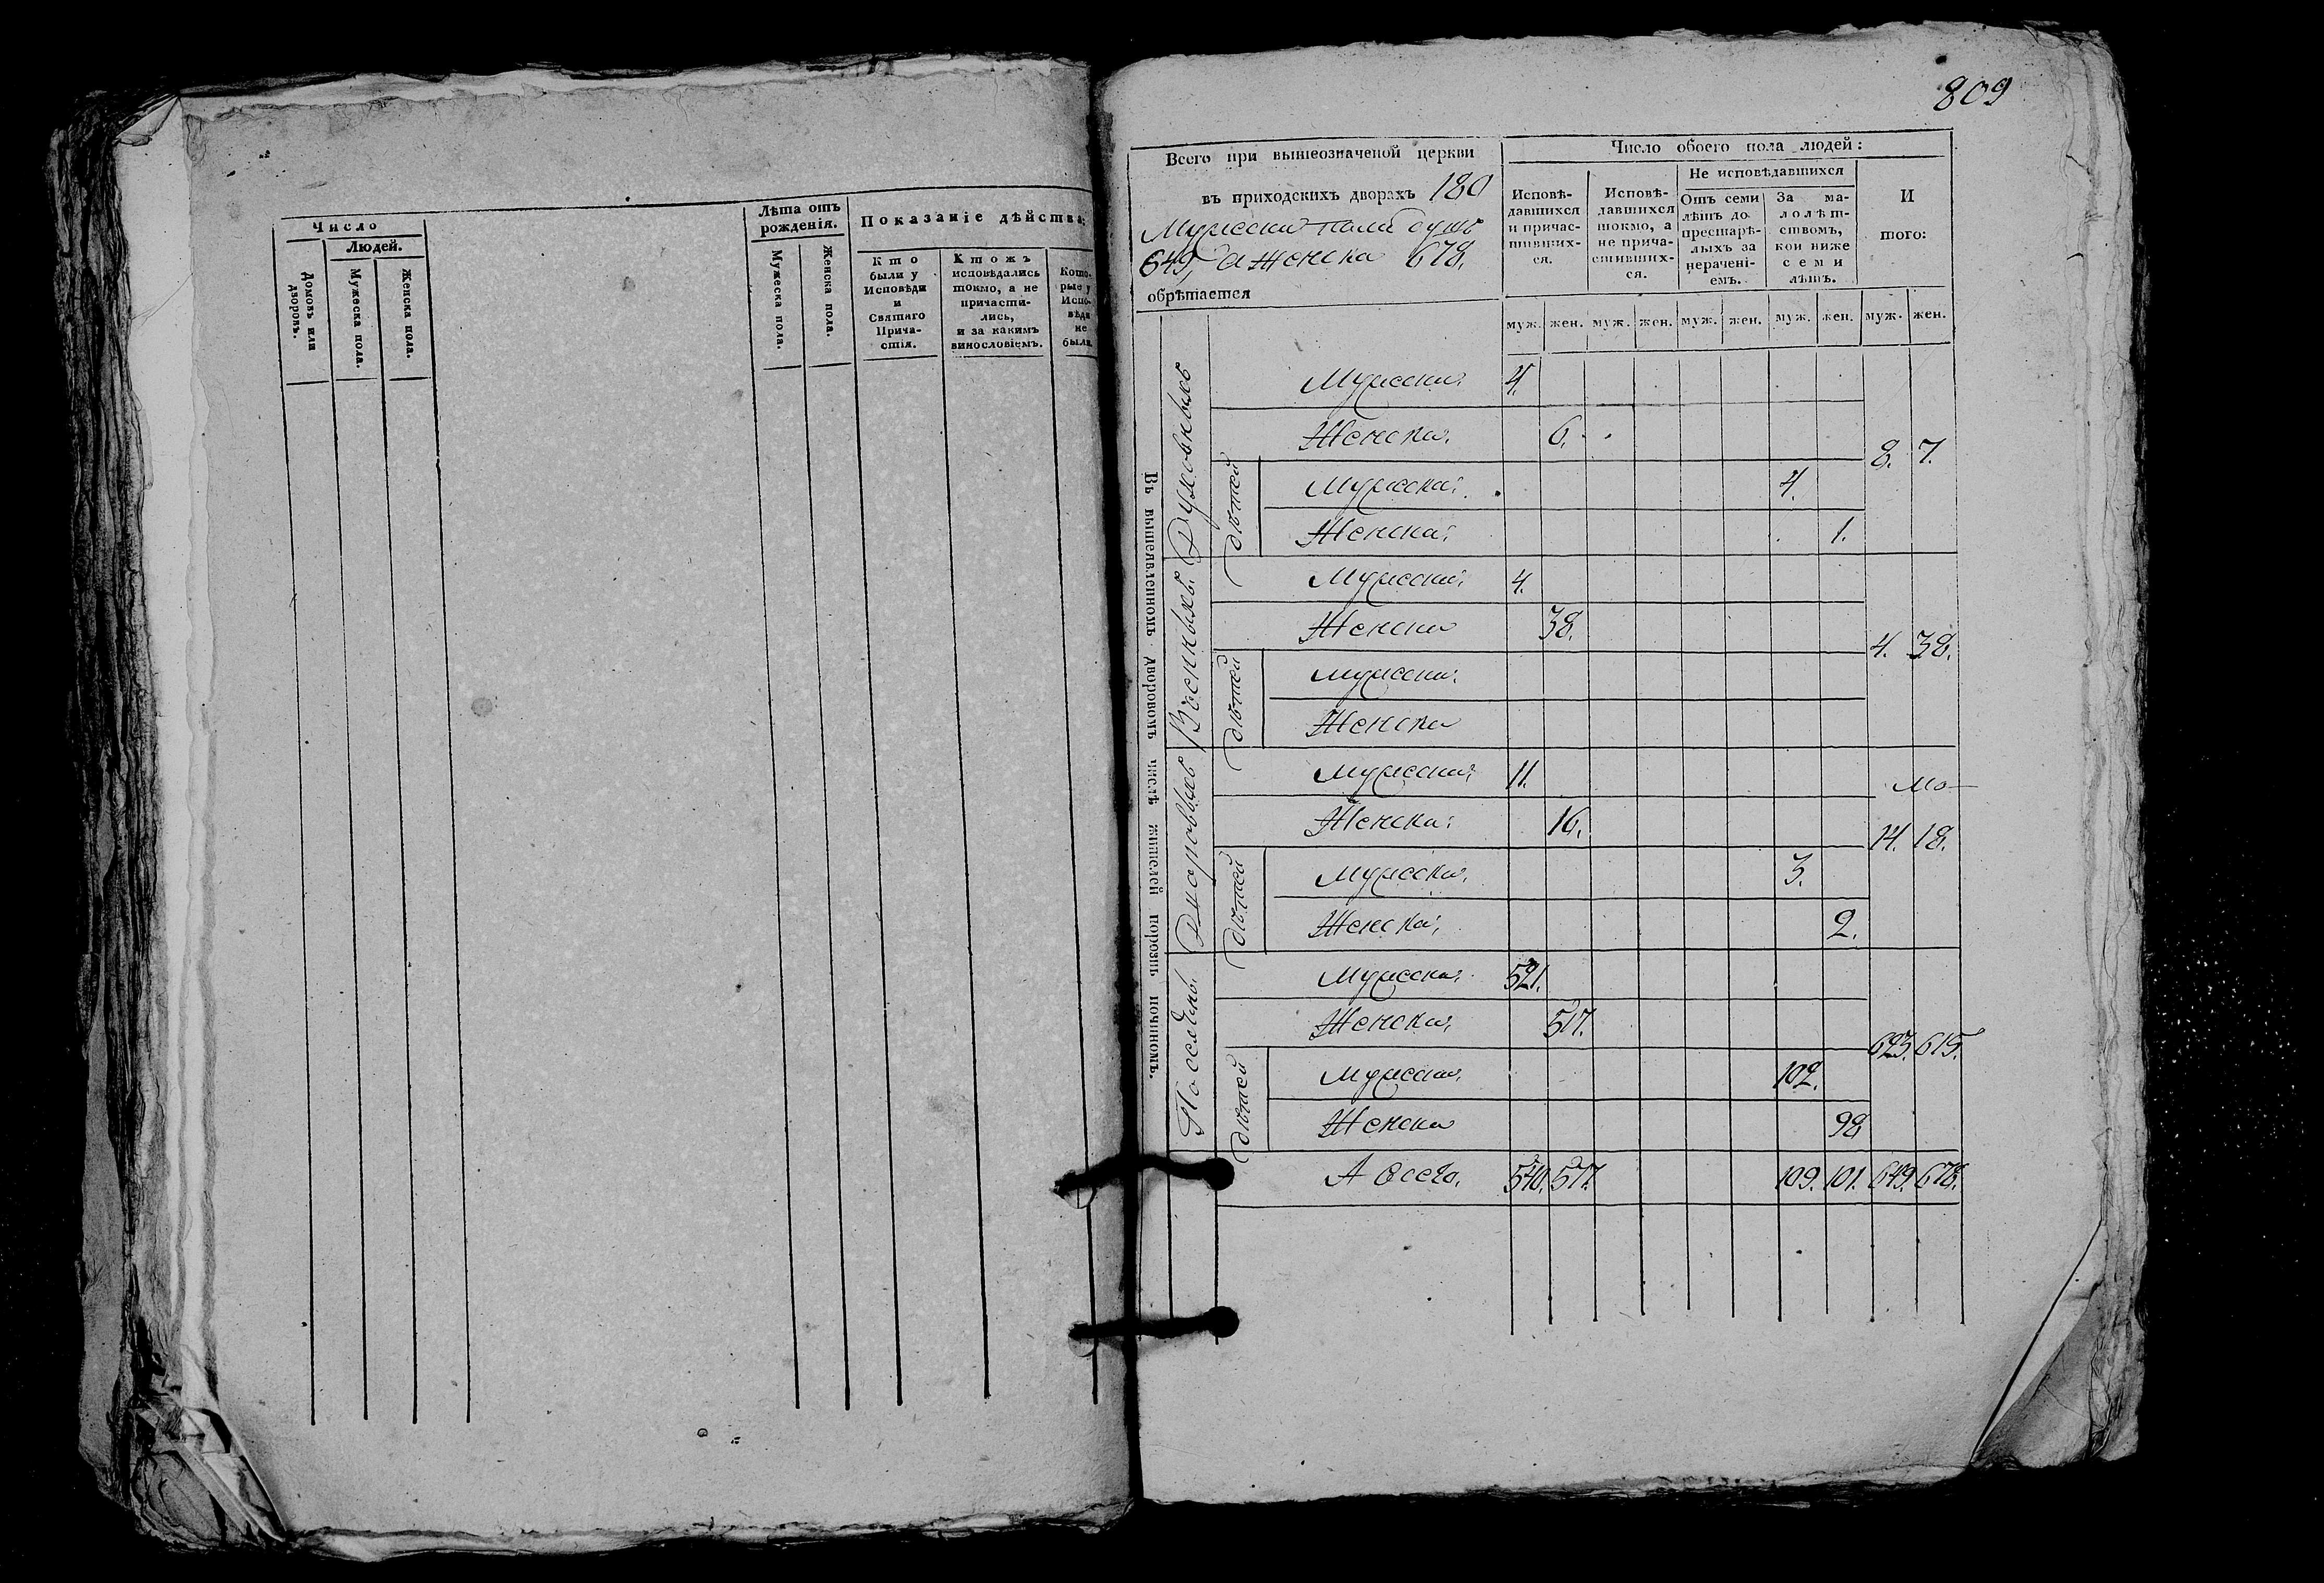 Число
Людей.
Домовъ или дворовъ.
Мужеска пола.
Женска пола.
Лѣта отъ рожденія.
Мужеска пола.
Женска пола.
Показаніе дѣйства;
Кто были у Исповѣди и Святаго Причастія.
Ктожъ исповѣдались токмо, а не причастились, и за какимъ винословіемъ.
Которые у Исповѣди не были.
809
Всего при вышеозначеной церкви
въ приходскихъ дворахъ 180
Мужеска пола душъ
649, а женска 678.
обрѣтается
Число обоего пола людей:
Исповѣдавшихся и причастившихся.
Исповѣдавшихся токмо, а не причастившихся.
Не исповѣдавшихся
Отъ семи лѣтъ до престарѣлыхъ за нераченіемъ.
За малолѣтствомъ, кои ниже семи лѣтъ.
И
того:
муж. жен. муж. жен. муж. жен. муж. жен. муж. жен.
Въ вышеявленномъ дворовомъ числѣ жителей порознь починомъ.
Духовныхъ
Мужеска 4.
Женска. 6.
8. 7.
дѣтей
Мужеска 4.
Женска 1.
Военныхъ
Мужеска 4.
Женска 38.
4. 38.
дѣтей
Мужеска
Женска
Дворовыхъ
Мужеска 11.
Женска 16.
14. 18.
дѣтей
Мужеска 3.
Женска 2.
Поселянъ
Мужеска 521.
Женска 517.
623. 615.
дѣтей
Мужеска 102.
Женска 98
А всего. 540. 577. 109. 101. 649. 678.